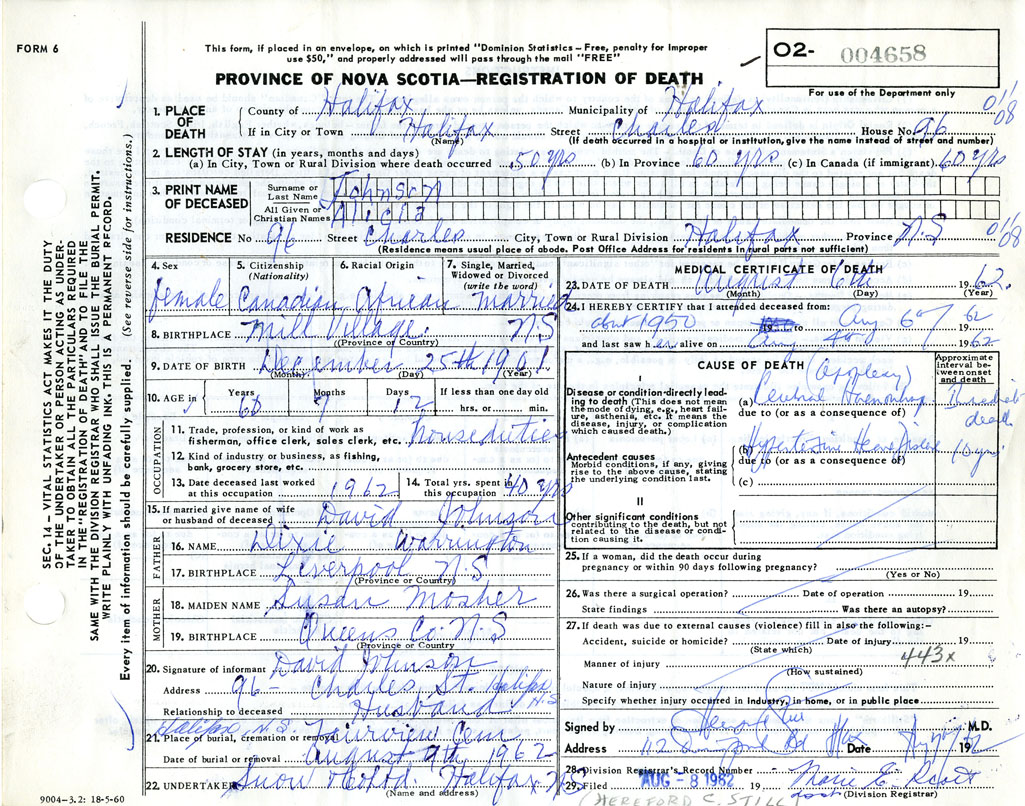 FORM 6
This form, if placed in an envelope, on which is printed "Dominion Statistics – Free, penalty for improper
use $50," and properly addressed will pass through the mail "FREE"
PROVINCE OF NOVA SCOTIA—REGISTRATION OF DEATH
O2- 004658
For use of the Department only
1. PLACE OF DEATH
County of Halifax Municipality of Halifax
If in City or Town Halifax Street Charles House No. 96
(Name) (If death occurred in a hospital or institution, give the name instead of street and number)
01/08
2. LENGTH OF STAY (in years, months and days)
(a) In City, Town or Rural Division where death occurred 50 yrs (b) In Province 60 yrs (c) In Canada (if immigrant) 60 yrs
3. PRINT NAME OF DECEASED
Surname or Last Name Johnson
All Given or Christian Names
RESIDENCE No 96 Street Charles City, Town or Rural Division Halifax Province N.S 01/08
(Residence means usual place of abode. Post Office Address for residents in rural parts not sufficient)
4. Sex female
5. Citizenship (Nationality) Canadian
6. Racial Origin African
7. Single, Married, Widowed or Divorced (write the word) Married
8. BIRTHPLACE Mill Village. N.S
(Province or Country)
9. DATE OF BIRTH December 25th 1901
(Month) (Day) (Year)
10. AGE in Years 60 Months 7 Days 12 If less than one day hrs. or min.
OCCUPATION
11. Trade, profession, or kind of work as
fisherman, office clerk, sales clerk, etc. house duties
12. Kind of industry or business, as fishing,
bank, grocery store, etc.
13. Date deceased last worked
at this occupation 1962
14. Total yrs. spent in
this occupation 40 yrs
15. If married give name of wife
or husband of deceased David Johnson
FATHER
16. NAME Dixie Warrington
17. BIRTHPLACE Liverpool N.S
(Province or Country)
MOTHER
18. MAIDEN NAME Susan Mosher
19. BIRTHPLACE Queens Co. N.S
(Province or Country)
20. Signature of informant David Johnson
Address 96 - Charles St. Halifax N.S
Relationship to deceased Husband
Halifax N.S.
21. Place of burial, cremation or removal Fairview Cem
Date of burial or removal August 9th 1962
22. UNDERTAKER Snow & Co Ltd. Halifax NS
(Name and address)
9004-3.2: 18-5-60
MEDICAL CERTIFICATE OF DEATH
23. DATE OF DEATH August 6th 1962.
(Month) (Day) (Year)
24. I HEREBY CERTIFY that I attended deceased from:
1950 to Aug 6 1962
and last saw her alive on Aug 1962
CAUSE OF DEATH
Approximate interval between onset and death
I
Disease or condition directly leading to death (This does not mean the mode of dying, e.g., heart failure, asthenia, etc. It means the disease, injury, or complication which caused death.)
(a) Cerebral
due to (or as a consequence of)
death
Antecedent causes
Morbid conditions, if any, giving rise to the above cause, stating the underlying condition last.
(b) Heart Disease 10 yrs
due to (or as a consequence of)
(c)
II
Other significant conditions
contributing to the death, but not related to the disease or condition causing it.
25. If a woman, did the death occur during
pregnancy or within 90 days following pregnancy?
(Yes or No)
26. Was there a surgical operation? Date of operation 19
State findings Was there an autopsy?
27. If death was due to external causes (violence) fill in also the following:-
Accident, suicide or homicide? Date of injury 19
(State which)
443x
Manner of injury
(How sustained)
Nature of injury
Specify whether injury occurred in industry, in home, or in public place
Signed by M.D.
Address Rd Hfx Date 19
28. Division Registrar's Record Number
29. Filed AUG - 8 1962 19 Marie E.
(Division Registrar)
(HEREFORD C. STILL
SEC. 14 – VITAL STATISTICS ACT MAKES IT THE DUTY
OF THE UNDERTAKER OR PERSON ACTING AS UNDERTAKER TO OBTAIN ALL THE PARTICULARS REQUIRED
IN THE "REGISTRATION OF DEATH" AND TO FILE THE
SAME WITH THE DIVISION REGISTRAR WHO SHALL ISSUE THE BURIAL PERMIT.
WRITE PLAINLY WITH UNFADING INK. THIS IS A PERMANENT RECORD.
Every item of information should be carefully supplied. (See reverse side for instructions.)